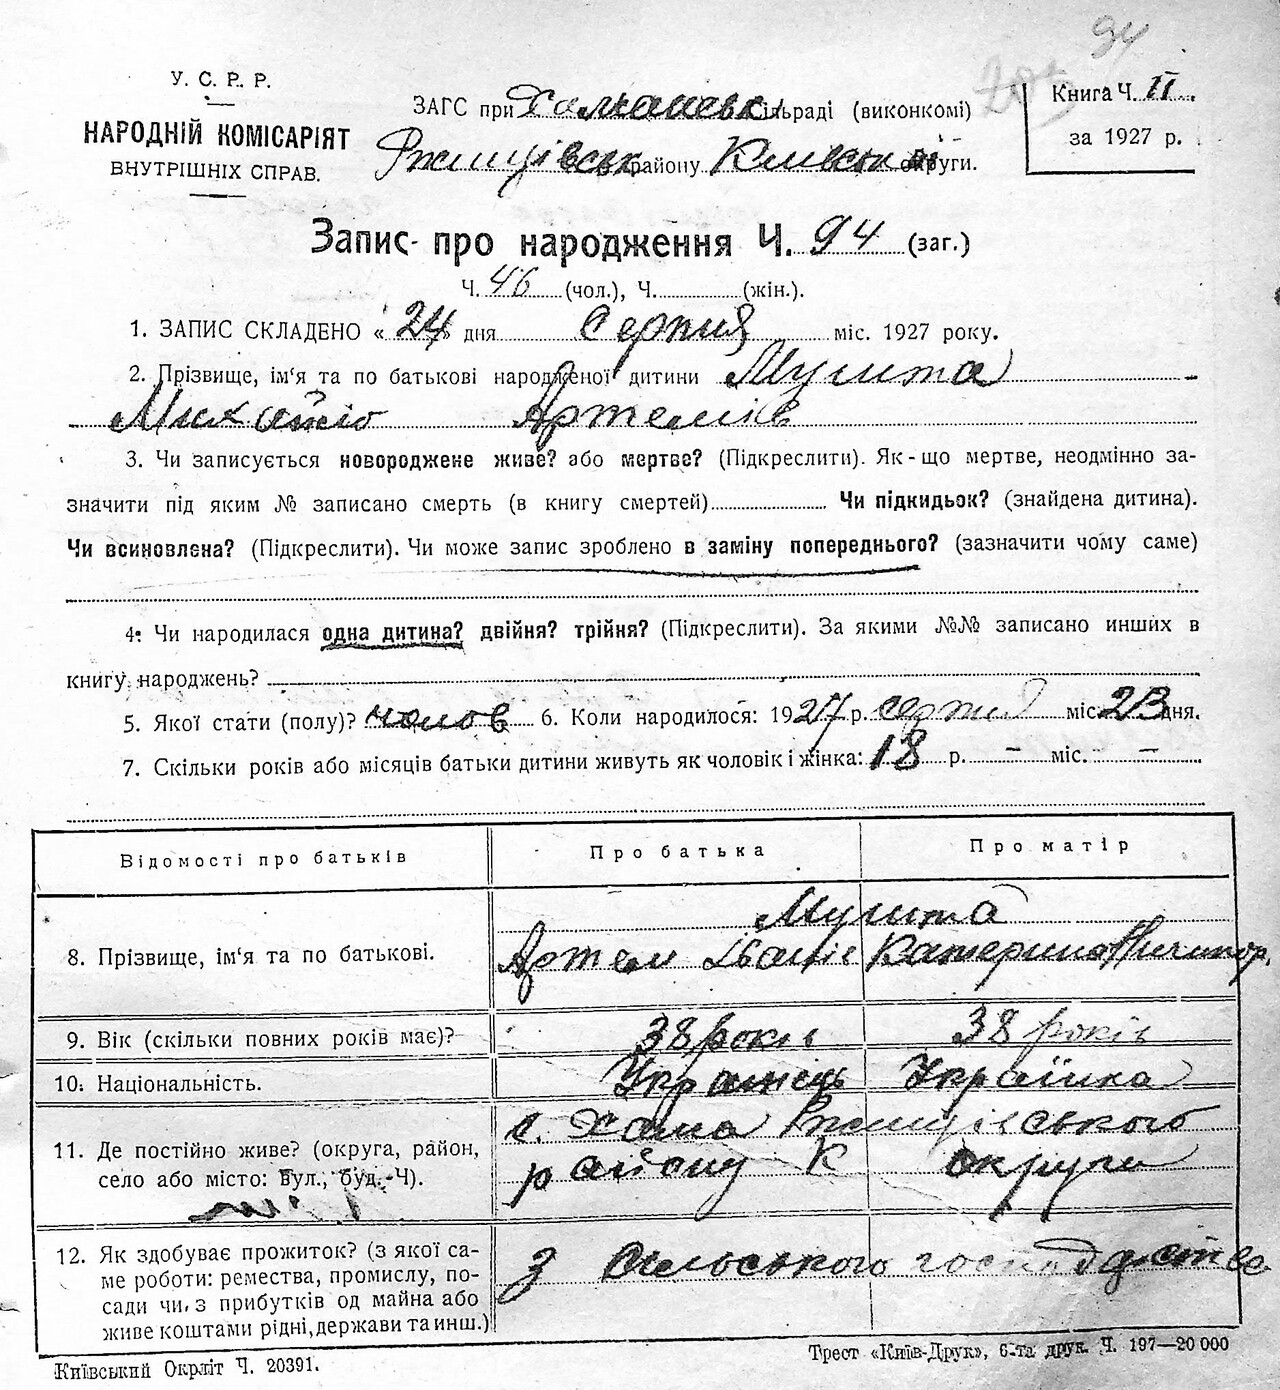 94
У. С. Р. Р.
НАРОДНІЙ КОМІСАРІЯТ
ВНУТРІШНІХ СПРАВ.
ЗАГС при Халчанськ сільраді (виконкомі)
Ржищівськ району Київської округи.
Книга Ч. II.
за 1927 р.
Запис про народження Ч. 94 (заг.)
Ч. 46 (чол.), Ч. (жін.).
1. ЗАПИС СКЛАДЕНО «24» дня Серпня міс. 1927 року.
2. Прізвище, ім‘я та по батькові народженої дитини Мушта
Михайло Артемів
3. Чи записується новороджене живе? або мертве? (Підкреслити). Як-що мертве, неодмінно за-
значити під яким № записано смерть (в книгу смертей) Чи підкидьок? (знайдена дитина).
Чи всиновлена? (Підкреслити). Чи може запис зроблено в заміну попереднього? (зазначити чому саме)
4. Чи народилася одна дитина? двійня? трійня? (Підкреслити). За якими №№ записано инших в
книгу народжень?
5. Якої стати (полу)? чолов 6. Коли народилося: 1927 р. серпня міс. 23 дня.
7. Скільки років або місяців батьки дитини живуть як чоловік і жінка: 18 р. – міс. –
Відомості про батьків Про батька Про матір
Мушта
8. Прізвище, ім‘я та по батькові. Артем Іванів Катерина Ничипор.
9. Вік (скільки повних років має)? 38 років 38 років
10. Національність. Українець Українка
11. Де постійно живе? (округа, район, с. Халча Ржищівського
село або місто: Вул., буд. Ч). району К округи
12. Як здобуває прожиток? (з якої са- з сільського господарства
ме роботи: ремества, промислу, по-
сади чи, з прибутків од майна або
живе коштами рідні, держави та инш.)
Київський Окрліт Ч. 20391.
Трест «Київ-Друк», 6-та друк. Ч. 197—20 000